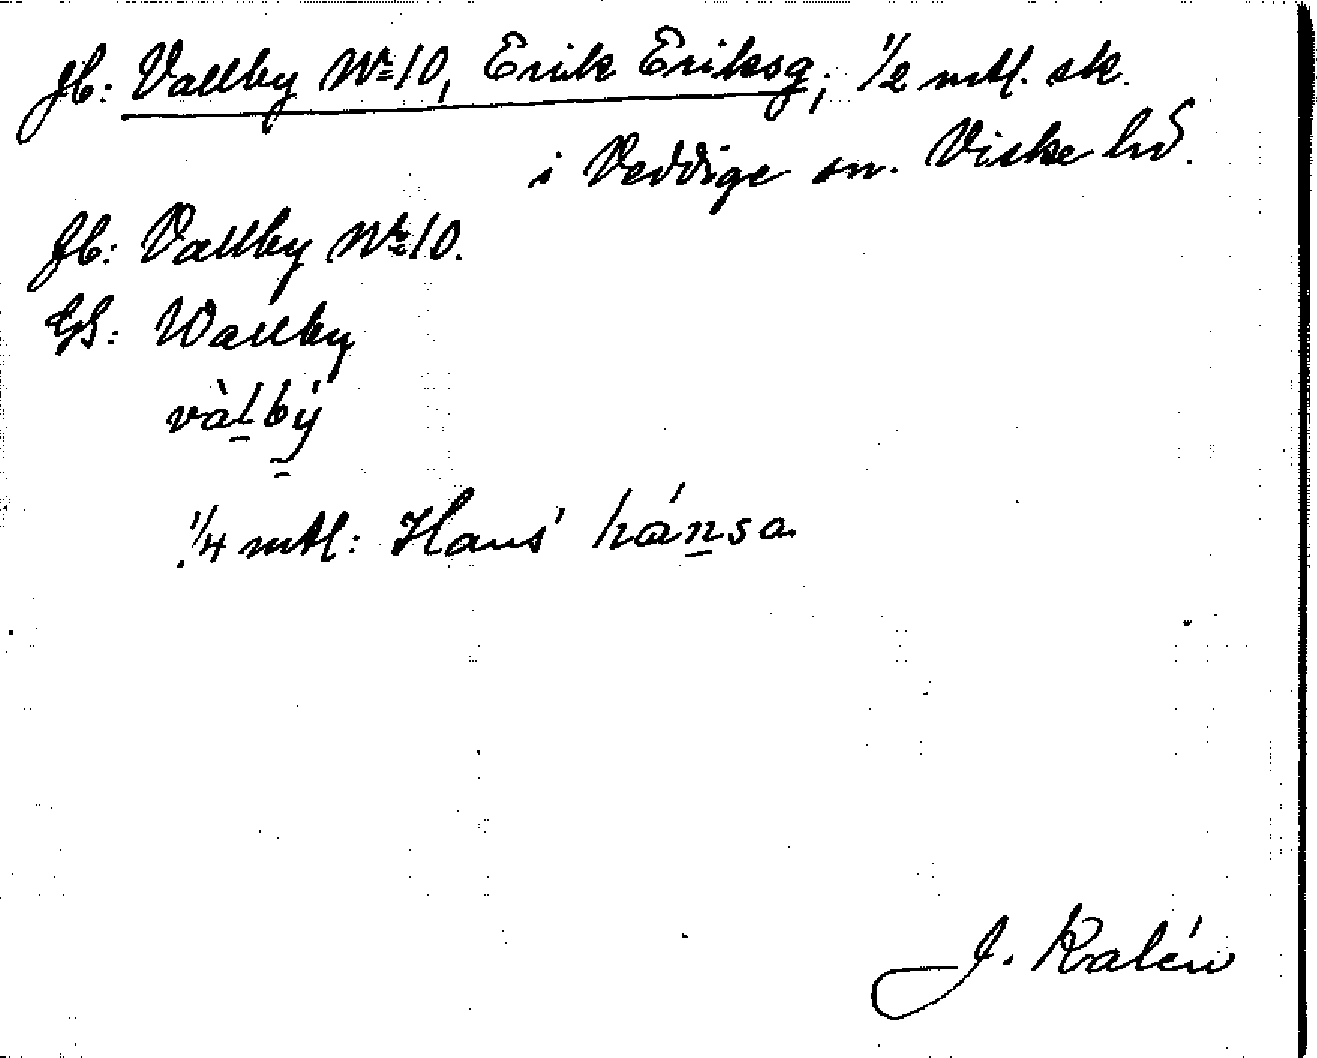 Jb: Vallby No 10, Erik Eriksg, 1/2 mtl. sk.
i Veddige sn. Viske hd.
Jb: Vallby No 10.
GS: Wallby
vàlbý
1/4 mtl: Hans' hánsa
J. Kalén